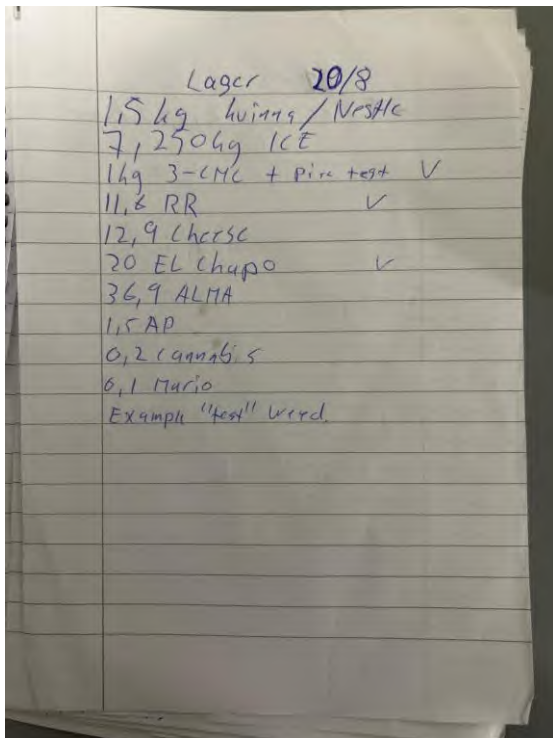 Lager 20/8
1,5 kg / Nestle
7,250kg ICE
1kg 3-CMC + test V
11,6 RR V
12,9 Cheese
20 EL Chapo V
36,9 ALMA
1,5 AP
0,2 Cannabis
6,1 Mario
Example "test" weed.